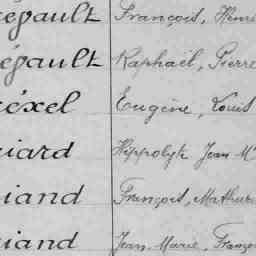 égault François, Henri
égault Raphaël, Pierre
éxel Eugène, Louis
iard Hippolyte Jean M
iand François, Mathur
iand Jean-Marie, Franço